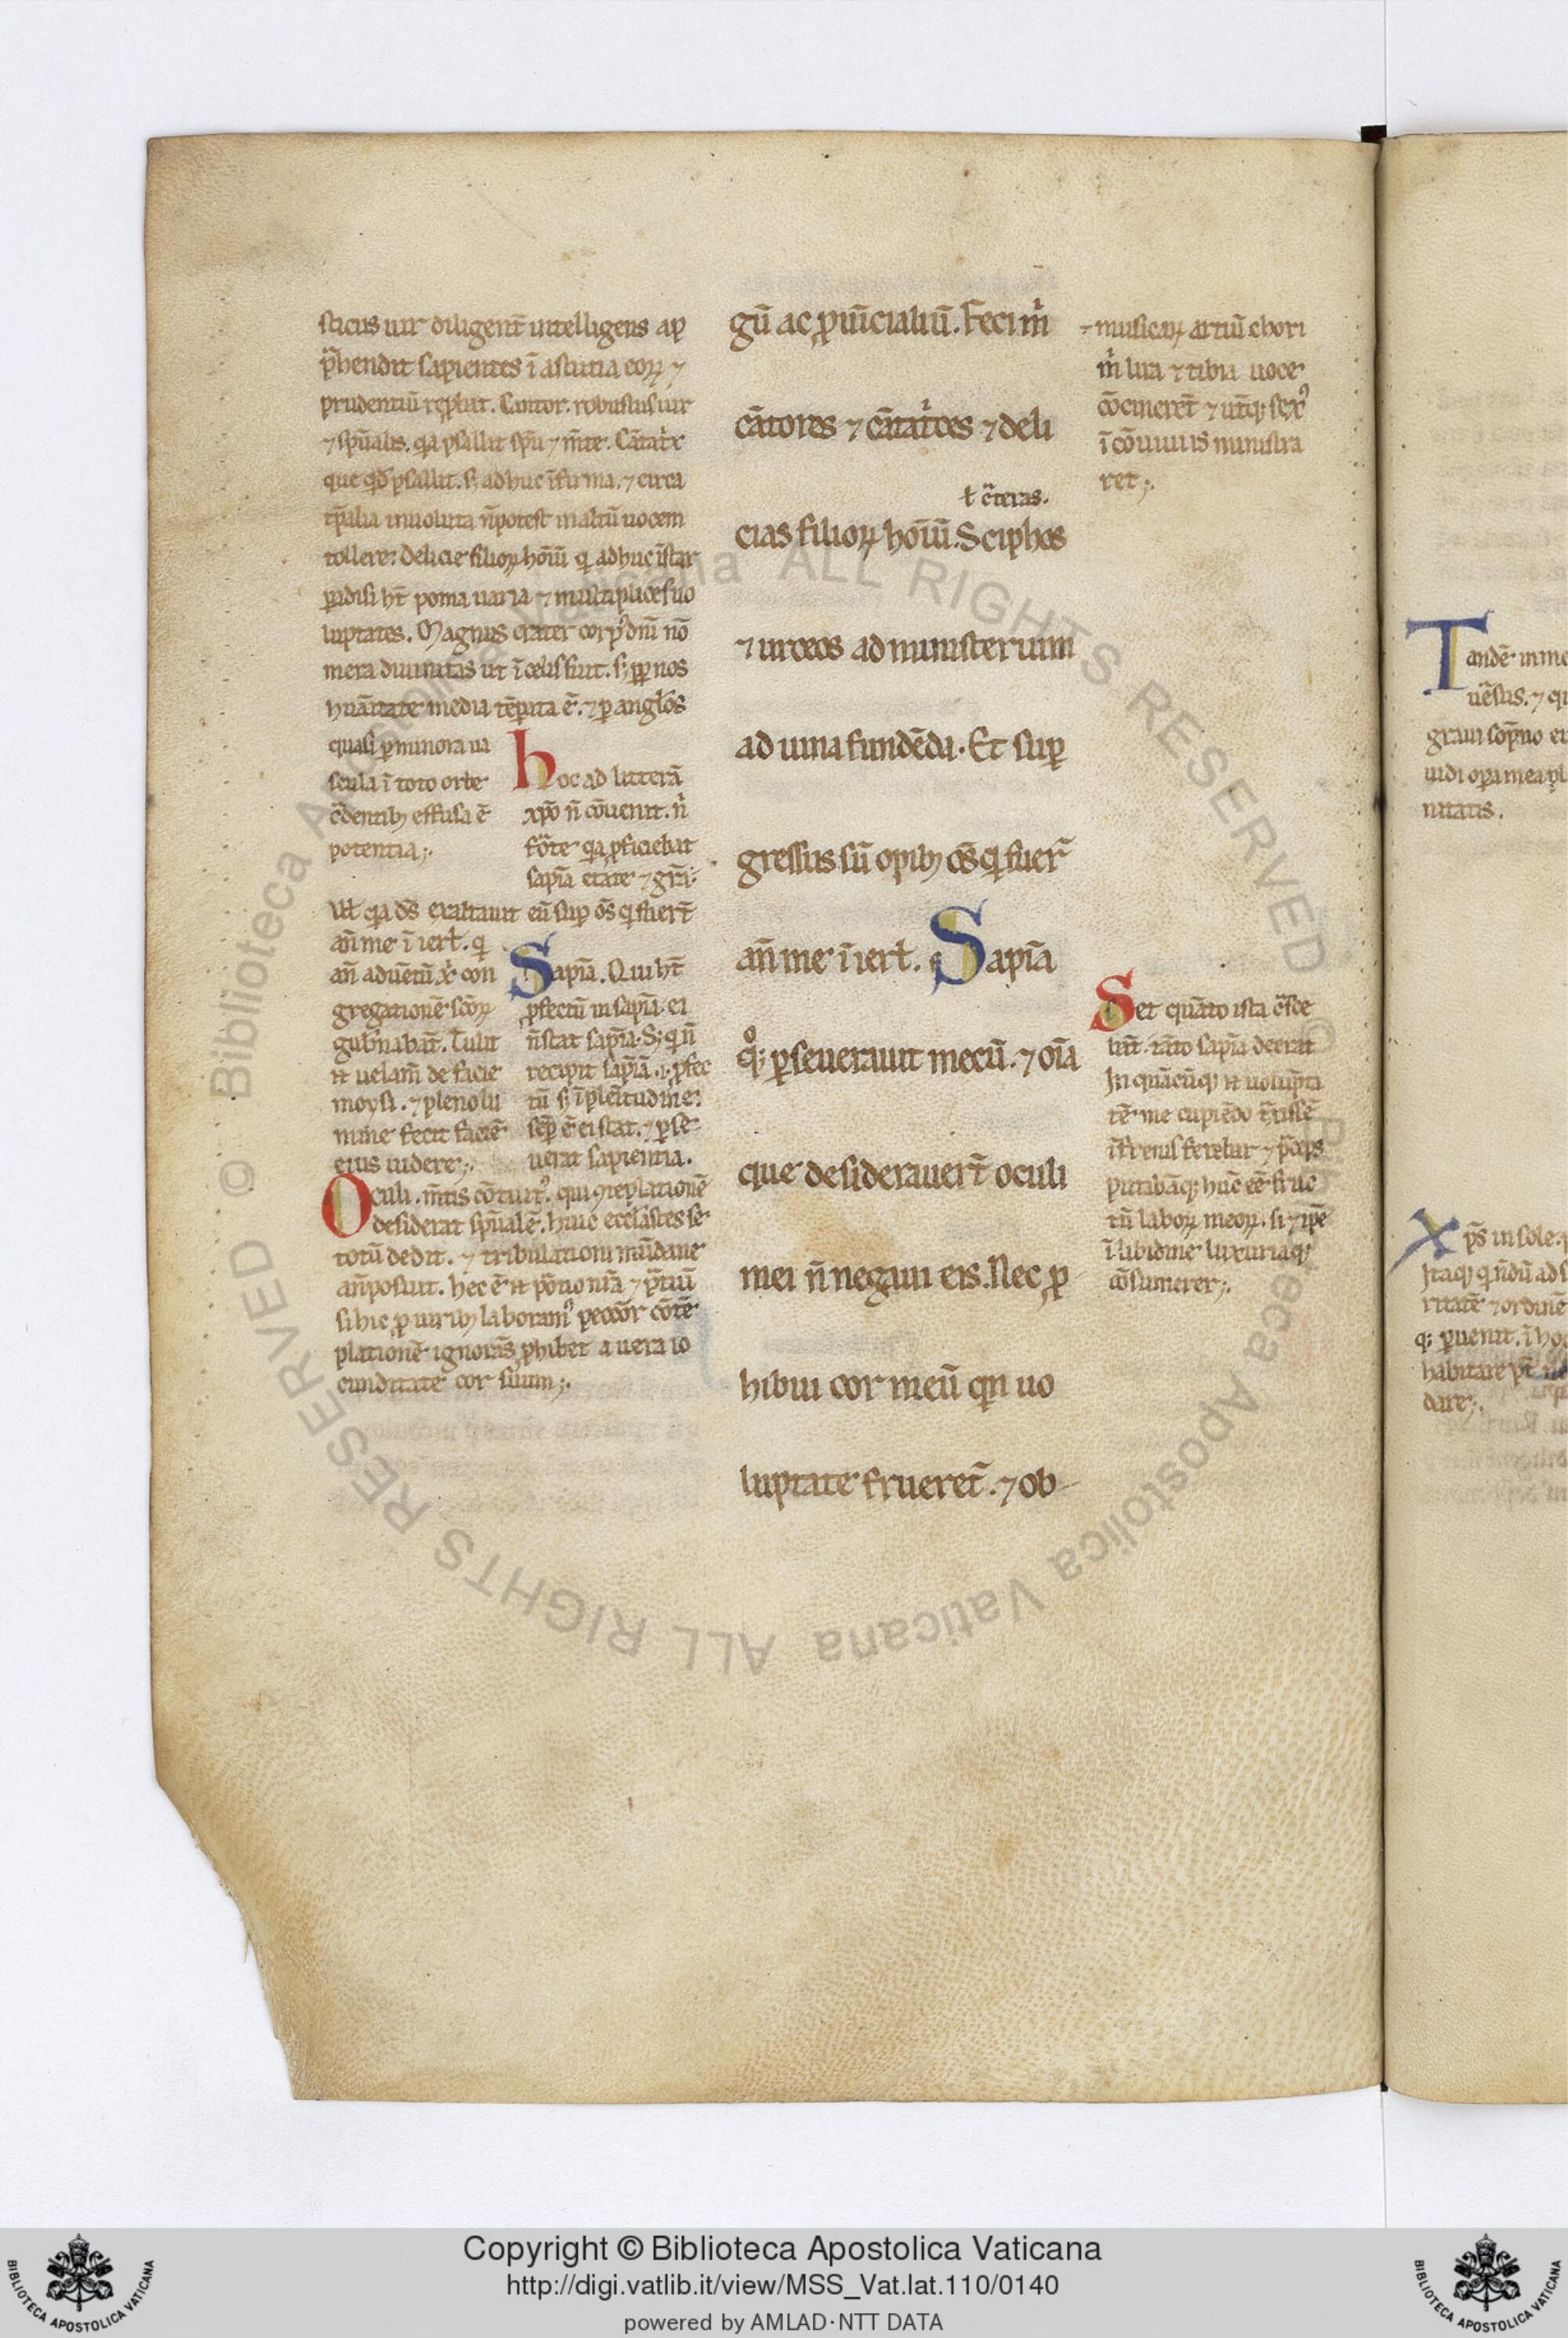 sticus uir diligent̄ intelligens ap
p̄hendit sapientes ī astutia eoꝝ ⁊
prudentiū rep̄hat. Cantor. robustus uir
⁊ sp̄ualis. qͣ psallit sp̄u ⁊ m̄te. Cātatͥx
que qd̓ psallit. sꝫ adhuc īfirma. ⁊ circa
tp̄alia inuoluta n̄ potest in altū uocem
tollere. delicie filioꝝ hoīū qͥ adhuc īstar
ꝑadisi hn̄t poma uaria ⁊ multiplices uo
luptates. Magnus crater corpꝰ dn̄i nō
mera diuinitas ut ī celis fuit. sꝫ ꝓpt̄ nos
huānitate media tēperata ē. ⁊ ꝑ angl̄os
quasi ꝑ minora ua
scula ī toto orbe
c̄dentibꝫ effusa ē
potentia;.
hoc ad litterā
xp̄o n̄ cōuenit. n̄
forte qͣ ꝓficiebat
sapīa etate ⁊ grā.
Vel̓ qͣ ds̄ exaltauit eū suꝑ os̄ qͥ fuert̄
an̄ me ī ierl̓. qͥ
an̄ aduētū xͥ con
gregationē sc̄oꝝ
gub̓nabāt. Tulit
n̄ uelam̄ de facie
moysi. ⁊ pleno lu
mine fecit faciē
eius uidere;.
Sapīa. Qui ht̄
ꝓfectū in sapīa. ei
n̄ stat sapīa. Sꝫ qͥ n̄
recipit sapīā .i. ꝓfec
tū sꝫ ī plenitudine
semꝑ ē ei stat. ⁊ ꝑse
uerat sapientia.
Oculi. m̄tis cōtuitꝰ. qui ꝯtēplationē
desiderat sp̄ualē. hunc eccl̓astes se
totū dedit. ⁊ tribulationi mūdane
an̄posuit. hec ē n̄ portio nr̄a ⁊ p̄tiū
si hic ꝓ uirtibꝫ laboramꝰ. peccōr cōtē
plationē ignorās ꝓhibet a uera io
cunditate cor suum;.
gū ac ꝓuīcialiū. Feci m̓
cātores ⁊ cātatͥces ⁊ deli
cias filioꝝ hoīū. Sciphos
ł c̄teras.
⁊ urceos ad ministerium
ad uina fundēda. Et suꝑ
gressus sū opibꝫ os̄ qͥ fuer̄
an̄ me ī ierl̓. Sapīa
qͦqꝫ ꝑseuerauit mecū. ⁊ oīa
que desiderauert̄ oculi
mei n̄ negaui eis. Nec ꝓ
hibui cor meū qn̄ uo
luptate frueret̄. ⁊ ob
⁊ musicaꝝ artiū chori
m̓ lira ⁊ tibia uoce
cōcineret̄ ⁊ ut̄qꝫ sexꝰ
ī cōuiuiis ministra
ret;.
Set quāto ista c̄sce
bāt. tāto sapīa deerat
In quācūqꝫ n̄ uolup̄ta
tē me cupiēdo t̄xissē
īfrenis ferebar ⁊ p̄ceps
putabāqꝫ hūc eē fruc
tū laboꝝ meoꝝ. si ⁊ ip̄e
ī libidine luxuriaqꝫ
cōsumerer;.
Tandē in me
uēsus. ⁊ qͥ
grauī sōpno
uidi oꝑa mea
nitatis.
Xps̄ in sole.
Itaqꝫ qͥ n̄dū ad s
ritatē ⁊ ordinē
qꝫ ꝑuenit. ī hoc
habitare
dare;.
Copyright © Biblioteca Apostolica Vaticana
http://digi.vatlib.it/view/MSS_Vat.lat.110/0140
powered by AMLAD·NTT DATA
BIBLIOTECA APOSTOLICA VATICANA
BIBLIOTECA APOSTOLICA VATICANA
© Biblioteca Apostolica Vaticana ALL RIGHTS RESERVED © Biblioteca Apostolica Vaticana ALL RIGHTS RESERVED